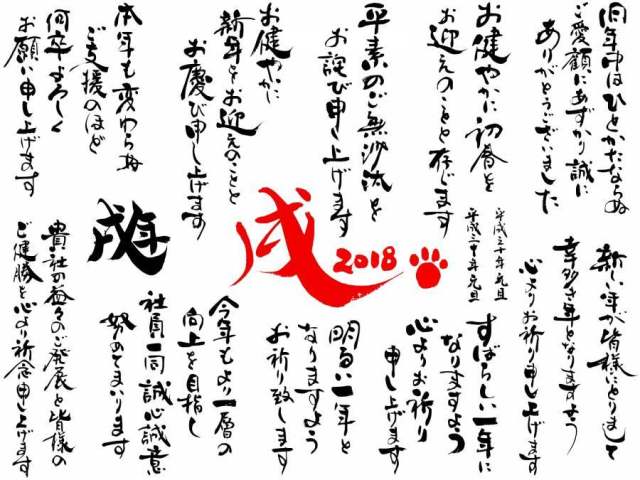 旧年中はひとかたならぬ
ご愛顧にあずかり誠に
ありがとうございました
お健やかに初春を
お迎えのことと存じます
平素のご無沙汰を
お詫び申し上げます
お健やかに
新年をお迎えのことと
お慶び申し上げます
本年も変わらぬ
ご支援のほど
何卒よろしく
お願い申し上げます
戌年
戌
2018
平成三十年元旦
平成三十年元旦
新しい年が皆様にとりまして
幸多き年となりますよう
心よりお祈り申し上げます
すばらしい一年に
なりますよう
心よりお祈り
申し上げます
明るい一年と
なりますよう
お祈り致します
今年もより一層の
向上を目指し
社員一同誠心誠意
努めてまいります
貴社の益々のご発展と皆様の
ご健勝を心より祈念申し上げます